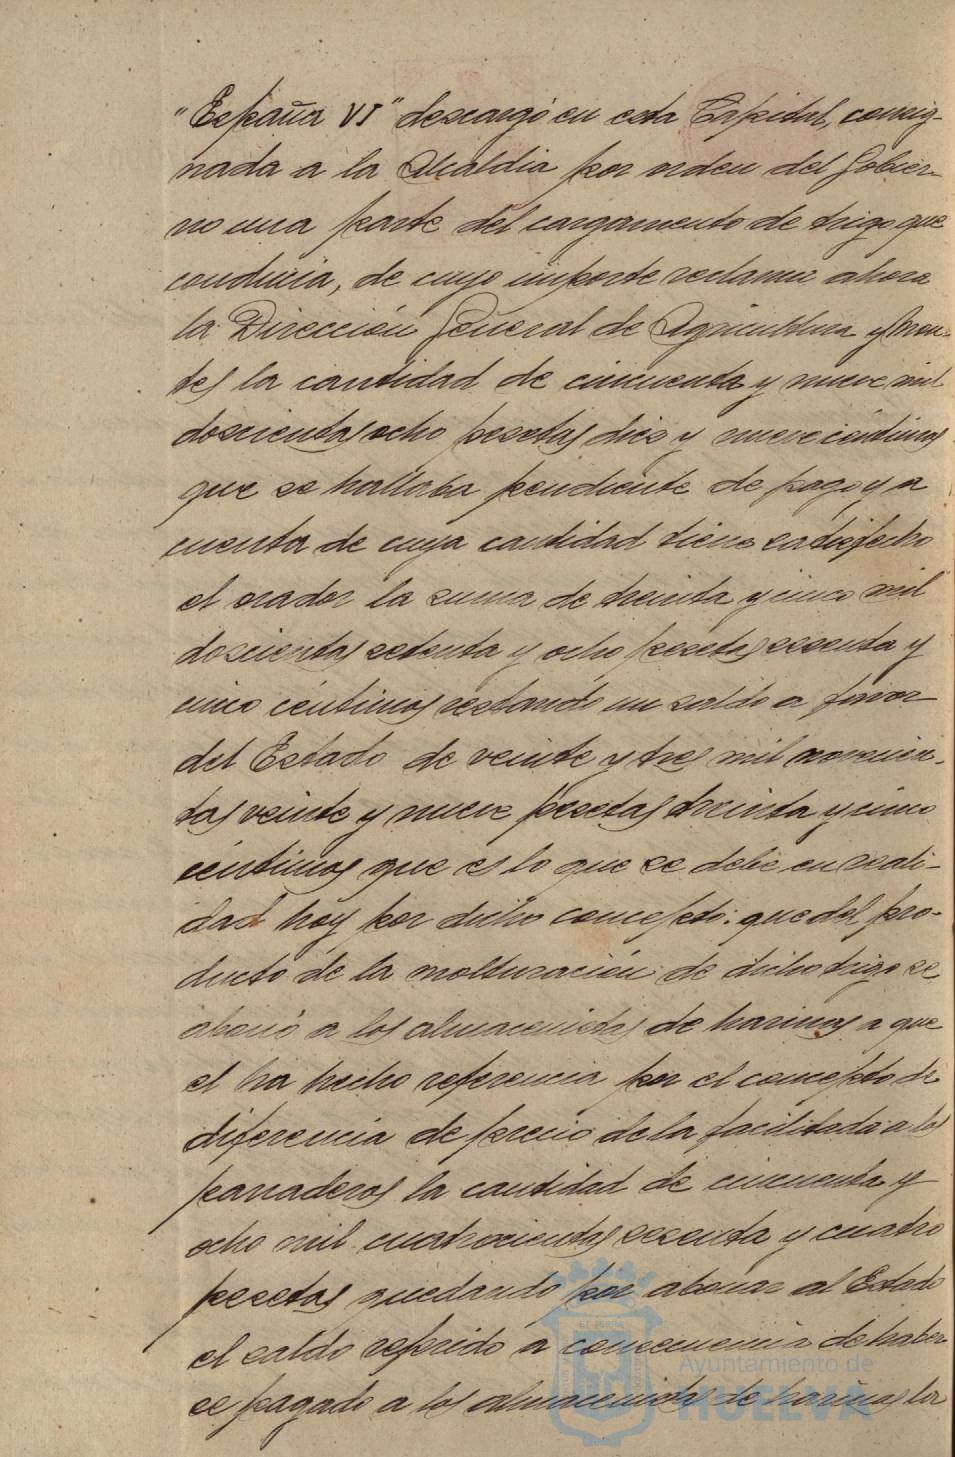 "España VI" descargó en esta Capital, consig-
nada a la Alcaldia por orden del Gobier-
no una parte del cargamento de trigo que
conducia, de cuyo importe reclama ahora
la Dirección General de Agricultura y Mon-
tes la cantidad de cincuenta y nueve mil
doscientas ocho pesetas diez y nueve céntimos
que se hallaba pendiente de pago y a
cuenta de cuya cantidad tiene satisfecho
el orador la suma de treinta y cinco mil
doscientas setenta y ocho pesetas sesenta y
cinco céntimos restando un saldo a favor
del Estado de veinte y tres mil novecien-
tas veinte y nueve pesetas treinta y cinco
céntimos que es lo que se debe en reali-
dad hoy por dicho concepto: que del pro-
ducto de la molturación de dicho trigo se
abonó a los almacenistas de harinas a que
el ha hecho referencia por el concepto de
diferencia de precio de la facilitada a los
panaderos la cantidad de cincuenta y
ocho mil cuatrocientas sesenta y cuatro
pesetas quedando por abonar al Estado
el saldo referido a consecuencia de haber
se pagado a los almacenistas de harinas la
Ayuntamiento de
HUELVA